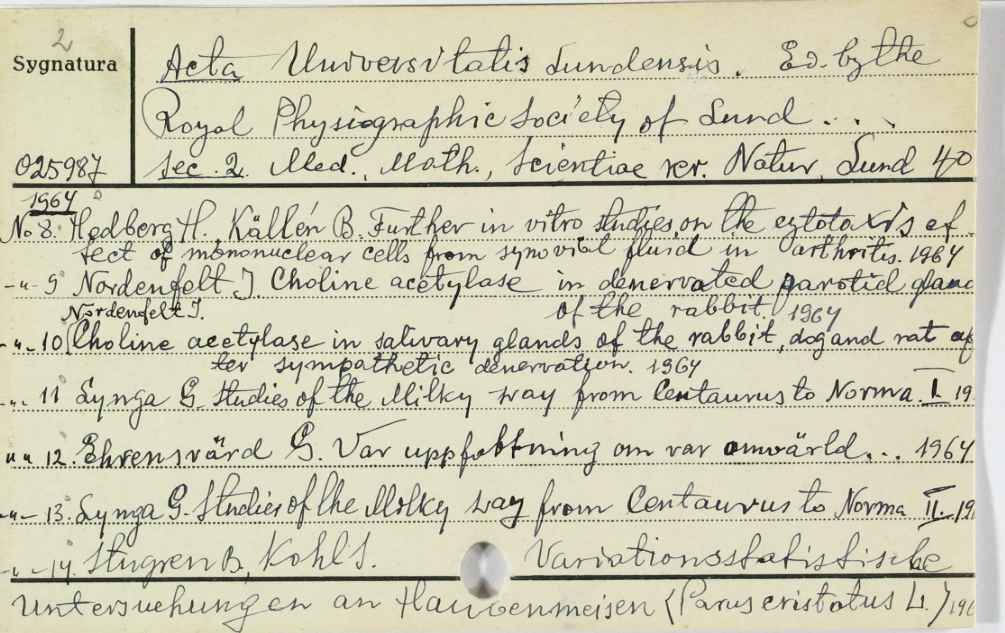 2
Sygnatura
Acta Universitatis Lundensis. Ed. by the
Royal Physiographic Society of Lund . . .
025987
Sec. 2. Med., Math., Scientiae rer. Natur, Lund 40
1964
No 8. Hedberg H, Källén B. Further in vitro studies on the cytotoxis ef
fect of mononuclear cells from synovial fluid in arthritis. 1964
-"- 9 Nordenfelt I. Choline acetylase in denervated parotid gland
of the rabbit. 1964
Nordenfelt I.
-"- 10 Choline acetylase in salivary glands of the rabbit, dog and rat af
ter sympathetic denervation. 1964
-"- 11 Lynga G. Studies of the Milky way from Centaurus to Norma. I 19
"" 12. Ehrensvärd G. Var uppfattning om var omvärld... 1964
-"- 13. Lynga G. Studies of the Milky way from Centaurus to Norma II. 19
-"- 14. Stugren B, Kohl S. Variationsstatistische
Untersuchungen an Haubenmeisen (Parus cristatus L.) 196